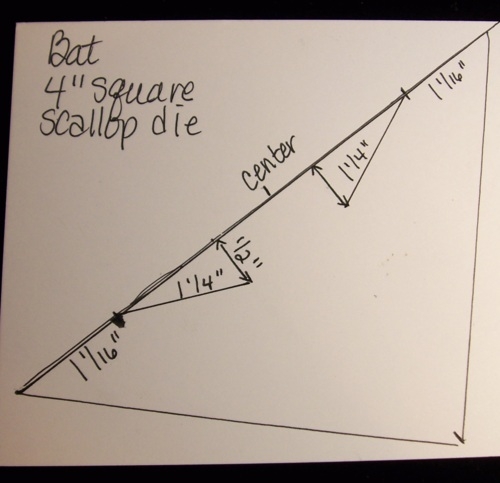 Bat
4" square
scallop die
center
1 1/16"
1 1/4"
1/2"
1 1/4"
1 1/16"